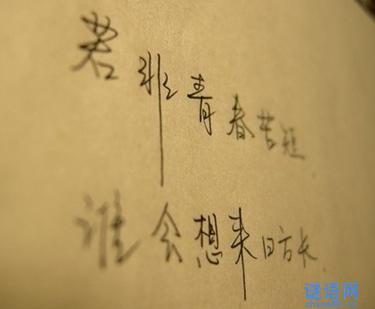 若非青春苦短
谁会想来日方长
谜语网